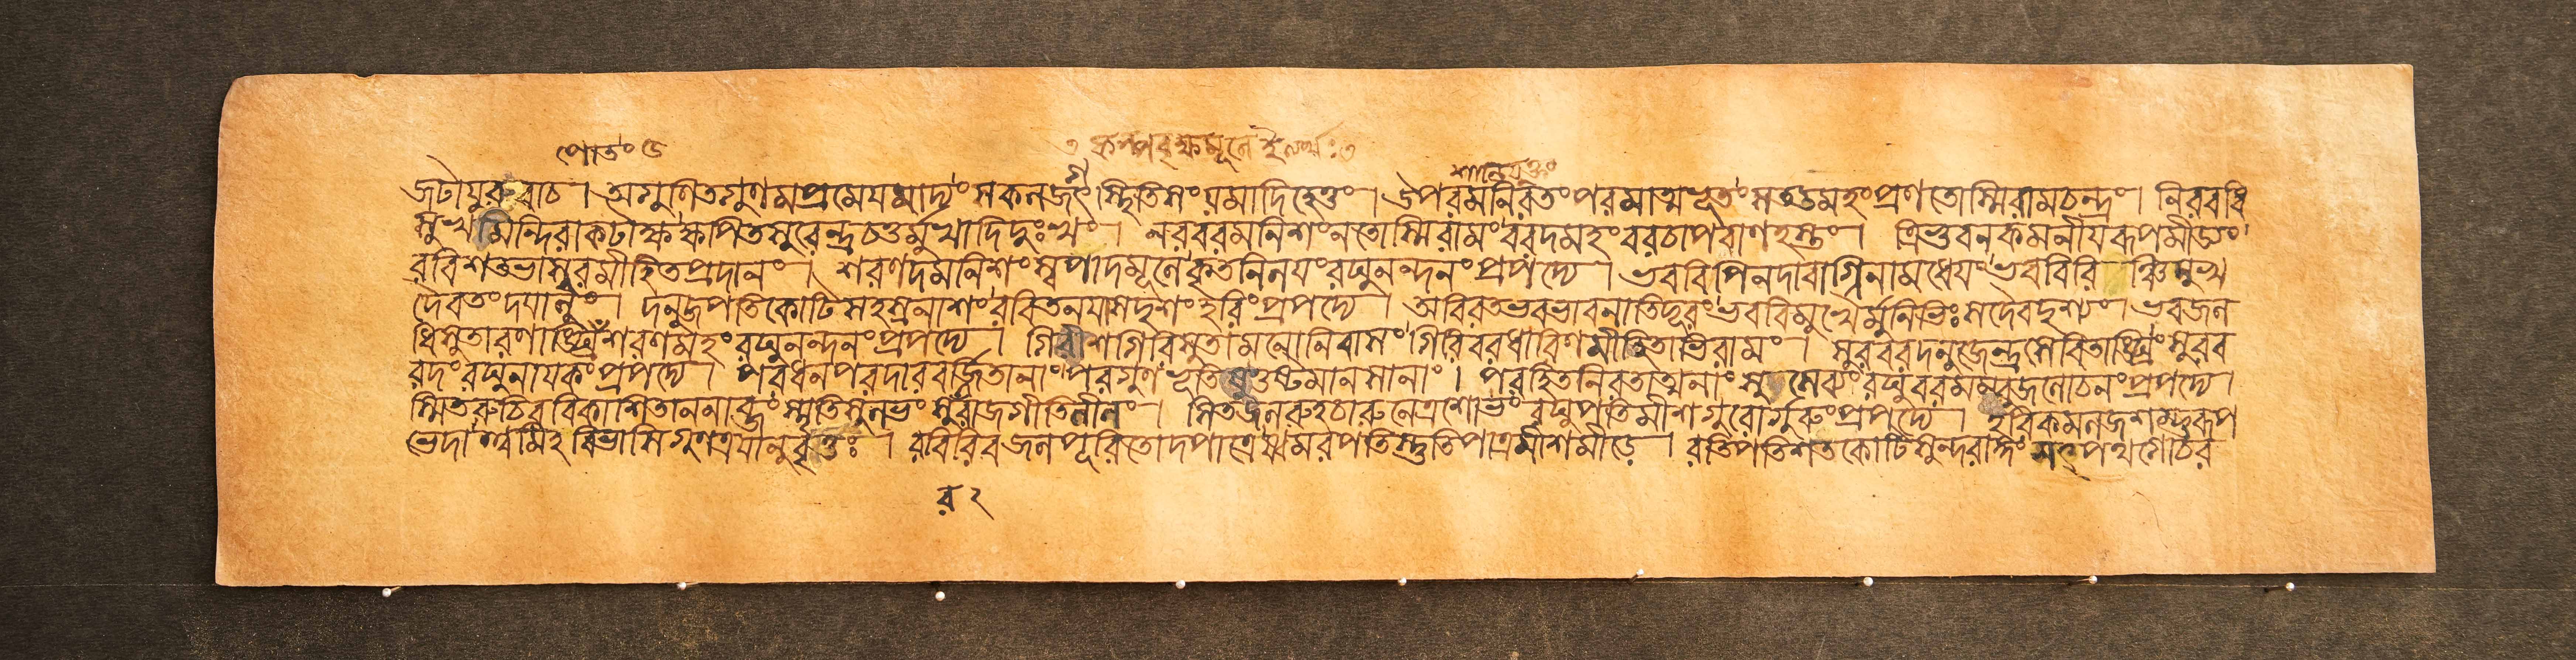 পোতং ৬
৩ কল্পবৃক্ষমূলে ৩
গ শান্তিযুক্তং
জটাযুরুবাচ । অগুণিতগুণমপ্রমেযমাদ্যং সকলজগৎস্থিতিসংযমাদিহেতুং । উপরমনিরতং পরমাত্মভূতং সততমহং প্রণতোস্মি রামচন্দ্রং । নিরবধি
সুখমিন্দিরাকটাক্ষং ক্ষপিতসুরেন্দ্রচতুর্মুখাদিদুঃখং । নরবরমনিশং নতোস্মি রামং বরদমহং বরচাপবাণহস্তং । ত্রিভুবনকমনীযরূপমীড্যং
রবিশতভাসুরমীহিতপ্রদানং । শরণদমনিশং সুপাদমূলে কৃতনিলযং রঘুনন্দনং প্রপদ্যে । ভববিপিনদাবাগ্নিনামধেযং ভববিরিঞ্চিমুখ
দৈবতং দযালুং । দনুজপতিকোটিসহস্রনাশং রবিতনযাসদৃশং হরিং প্রপদ্যে । অবিরতভবভাবনাতিদূরং ভববিমুখৈর্মুনিভিঃ সদৈব দৃশ্যং । ভবজল
ধিসুতারণাঙ্ঘ্রিং শরণমহং রঘুনন্দনং প্রপদ্যে । গিরীশগিরিসুতামনোনিবাসং গিরিবরধারিণমীহিতাভিরামং । সুরবরদনুজেন্দ্রসেবিতাঙ্ঘ্রিং সুরব
রদং রঘুনাযকং প্রপদ্যে । পরধনপরদারবর্জিতানাং পরগুণভূতিষু তুষ্টমানসানাং । পরহিতনিরতাত্মনাং সুসেব্যং রঘুবরমম্বুজলোচনং প্রপদ্যে ।
স্মিতরুচিরবিকাশিতাননাব্জং স্মৃতিসুলভং সুররাজগীতিনীলং । সিতজলরুহচারুনেত্রশোভং রঘুপতিমীশগুরোর্গুরুং প্রপদ্যে । হরিকমলজশম্ভুরূপ
ভেদাত্ত্বমিহ বিভাসি গুণত্রযানুবৃত্তঃ । রবিরিব জলপূরিতোদপাত্রেষ্বমরপতিস্তুতিপাত্রমীশমীডে । রতিপতিশতকোটিসুন্দরাঙ্গং শতপথগোচর
র ২